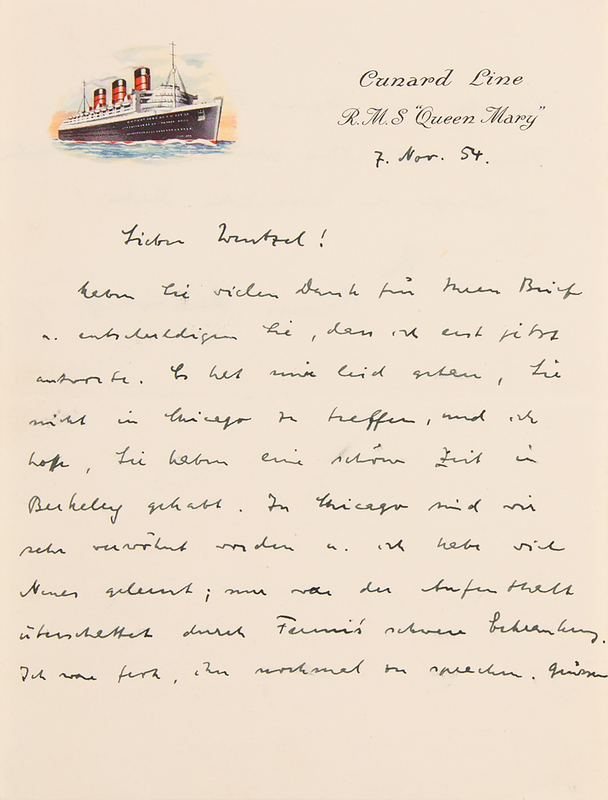 Cunard Line
R.M.S "Queen Mary"
7. Nov. 54.
Lieber Wentzel!
haben Sie vielen Dank für Ihren Brief
u. entschuldigen Sie, dass ich erst jetzt
antworte. Es hat mir leid getan, Sie
nicht in Chicago zu treffen, und ich
hoffe, Sie haben eine schöne Zeit in
Berkeley gehabt. In Chicago sind wir
sehr verwöhnt worden u. ich habe viel
Neues gelernt; nur war der Aufenthalt
überschattet durch Fermi's schwere Erkrankung.
Ich war froh, ihn nochmal zu sprechen. Grüssen